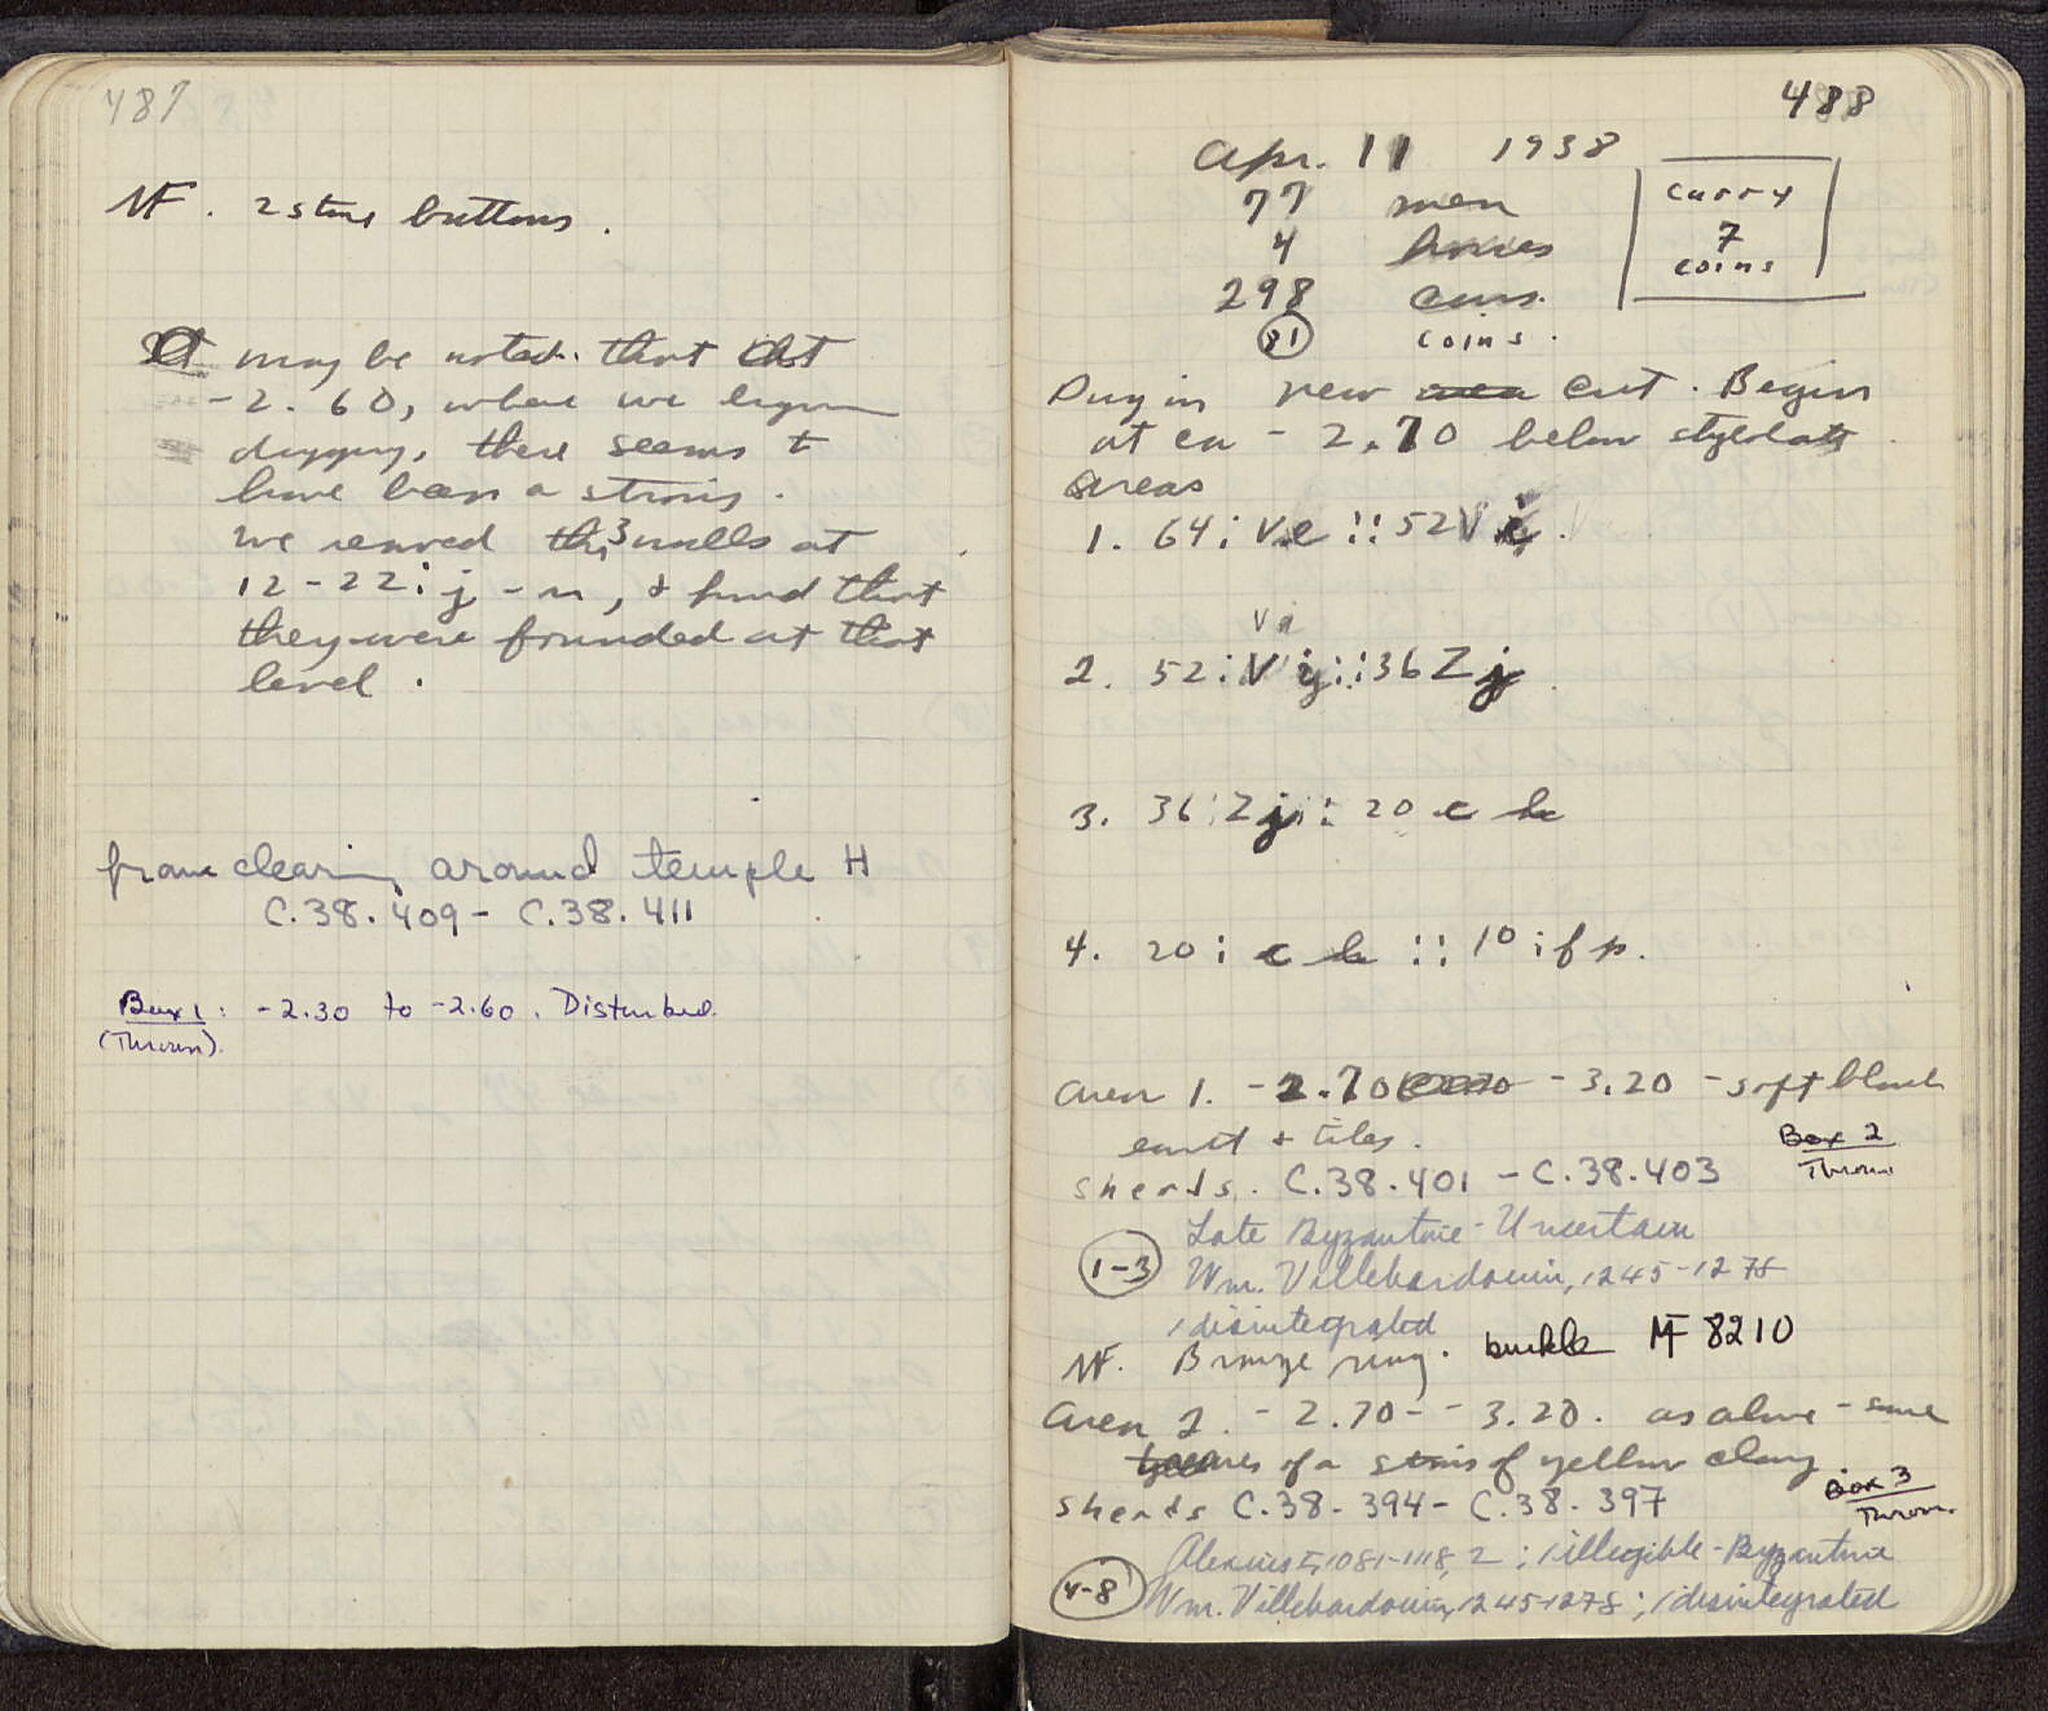 487
MF. 2 stone buttons.
It may be noted that at
-2.60, where we began
digging, there seems to
have been a strosis.
we removed the 3 walls at
12-22:j-n, & found that
they were founded at that
level.
from clearing around temple H
C.38.409 - C.38.411
Box 1: -2.30 to -2.60. Disturbed.
(Thrown).
488
Apr. 11 1938
77 men
4 horses
298 cars.
81 coins.
carry
7
coins
Dug in new area cut. Begin
at ca -2.70 below stylobate
areas
1. 64:Ve::52V
Va
2. 52:V::36Zj
3. 36:Zj::20
4. 20:::10:fp.
Area 1. -2.70 -3.20 - soft black
earth & tiles.
Box 2
Thrown
sherds. C.38.401 - C.38.403
Late Byzantine - Uncertain
1-3 Wm. Villehardouin, 1245-1278
1 disintegrated
MF. Bronze ring. buckle MF 8210
Area 2. -2.70 - -3.20. as above - some
traces of a strosis of yellow clay.
Box 3
Thrown.
sherds C.38-394 - C.38.397
Alexius I, 1081-1118, 2; 1 illegible - Byzantine
4-8 Wm. Villehardouin, 1245-1278; 1 disintegrated